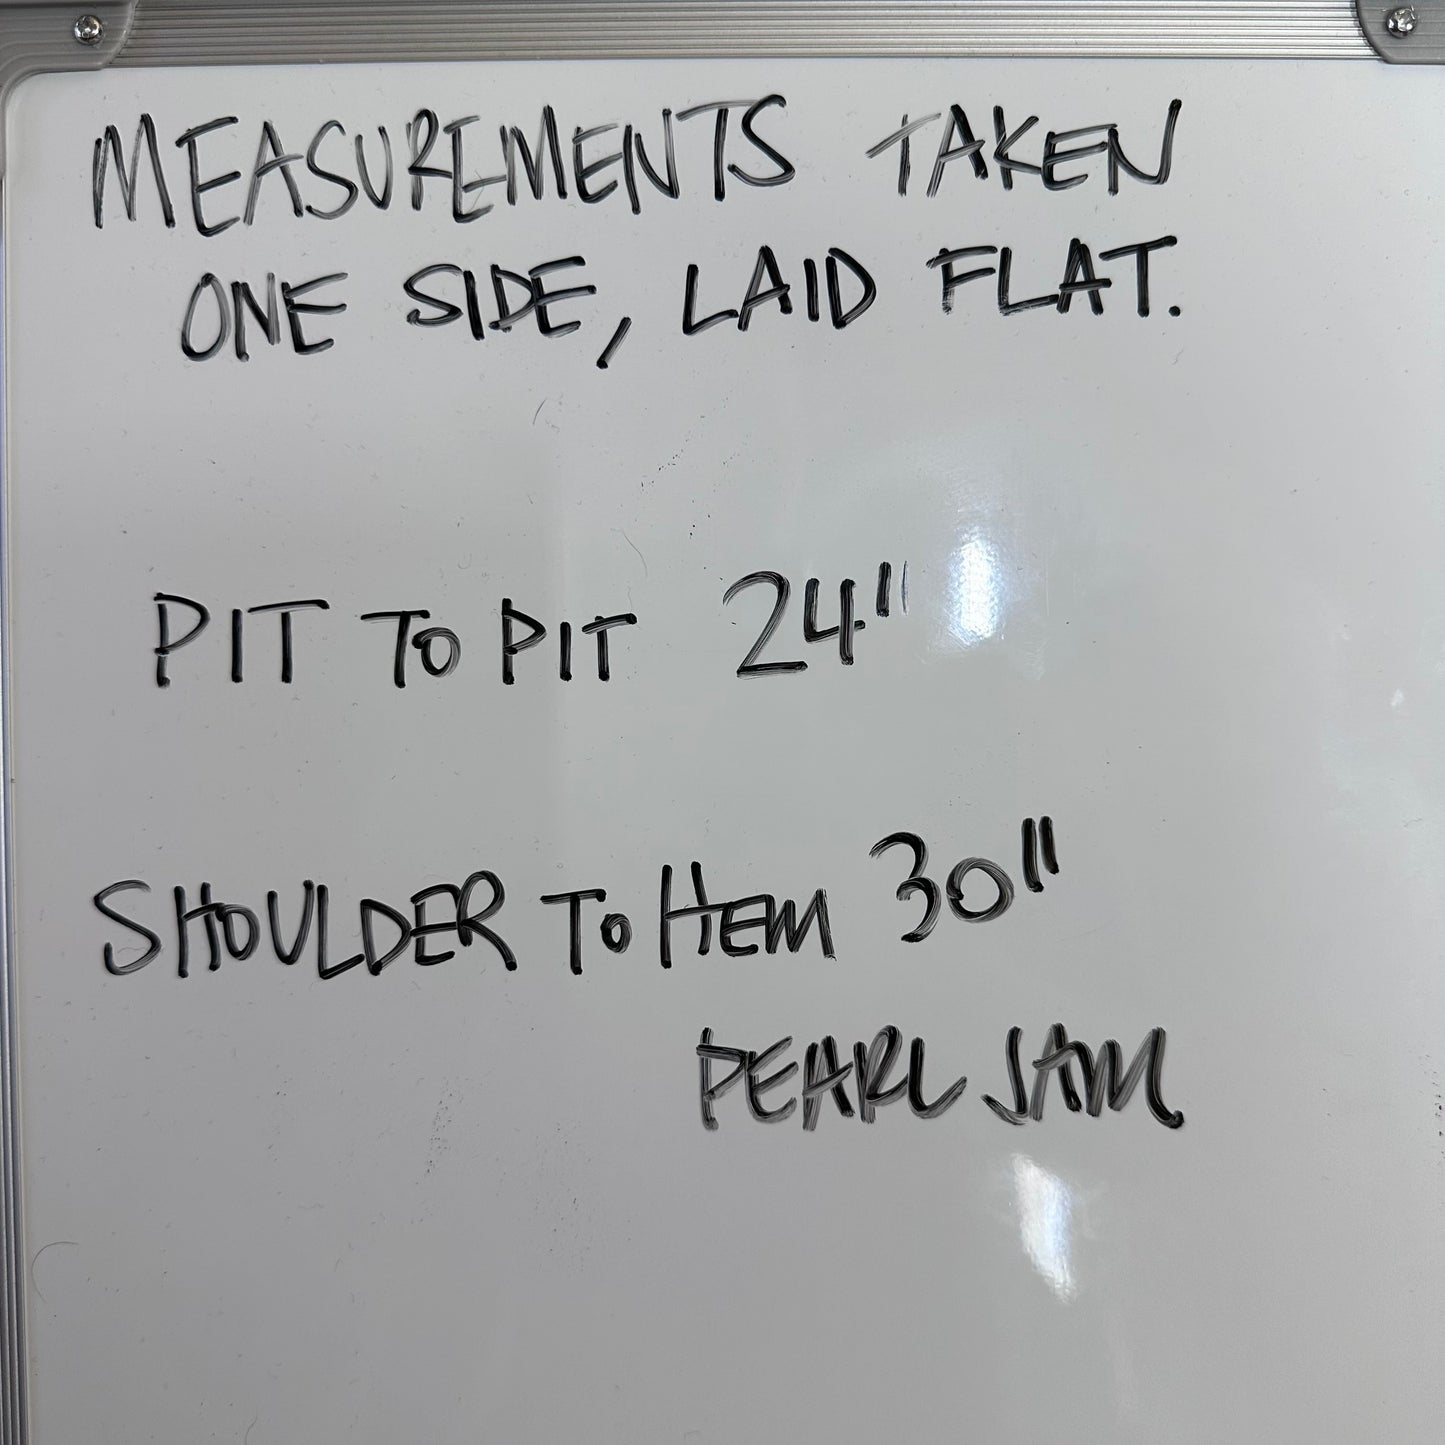 MEASUREMENTS TAKEN
ONE SIDE, LAID FLAT.
PIT TO PIT 24"
SHOULDER TO HEM 30"
PEARL JAM